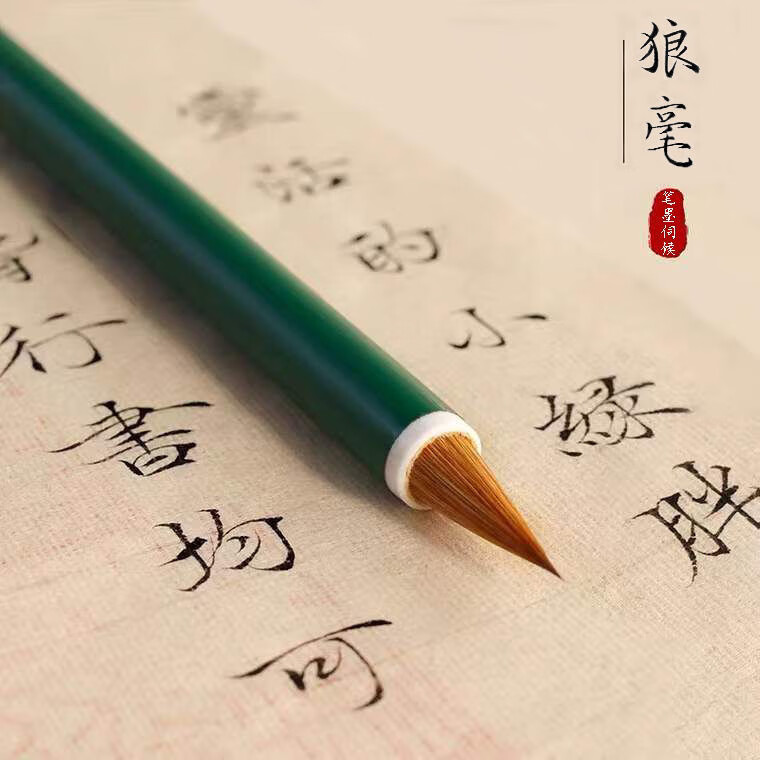 狼毫
笔墨伺候
活的小綠胖
行書均可